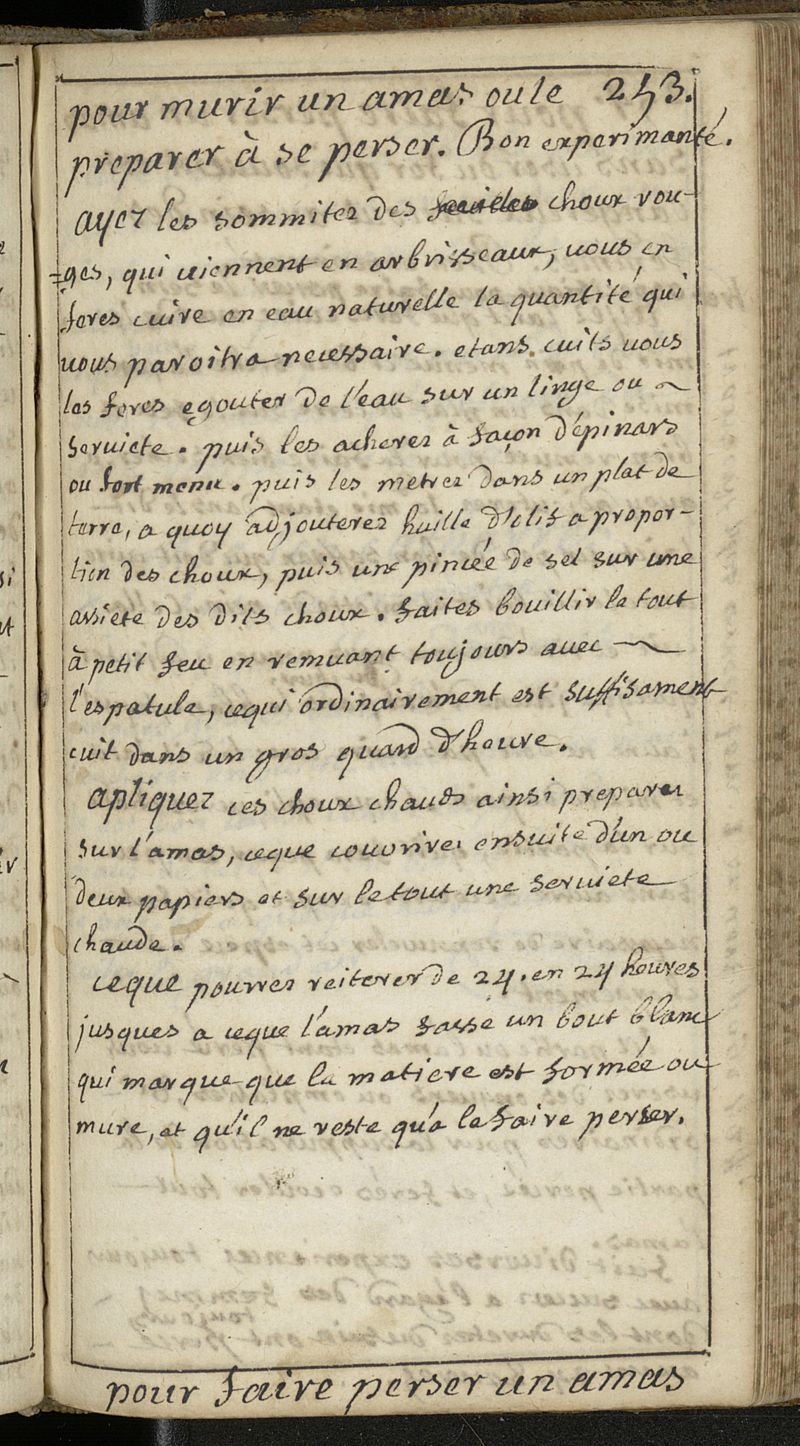 pour murir un amas oule 253.
preparer à se perser. Bon experimanté.
ayez les sommitez des choux rou-
=ges, qui viennent en arbrisseaux, vous en
feres cuire en eau naturelle la quantité qui
vous paroitra necessaire. etans cuits vous
les feres egouter de l'eau sur un linge ou ~
serviete. puis les acherez à façon d'épinars
ou fort menu. puis les metrez dans un plat de
terre, a quoy adjouterez huille d'olif a propor-
tion des choux, puis une pincée de sel sur une
assiete des dits choux. faites bouillir le tout
à petit feu en remuant toujours avec ~
l'espatule, cequi ordinairement est suffisament
cuit dans un gros quard d'heure.
apliquez ces choux chauds ainsi preparez
sur l'amas, ceque couvrirez ensuite d'un ou
deux papiers et sur le tout une serviete
chaude.
ceque pourrez reiterer de 24. en 24 heures
jusques a ceque l'amas fasse un bout blanc
qui marque que la matiere est formée ou
mure, et qu'il ne reste qu'a le faire perser.
pour faire perser un amas